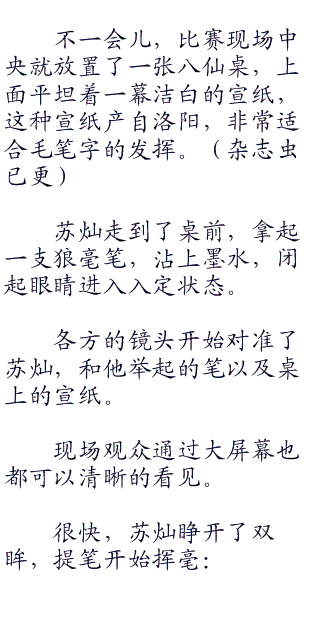 不一会儿，比赛现场中
央就放置了一张八仙桌，上
面平坦着一幕洁白的宣纸，
这种宣纸产自洛阳，非常适
合毛笔字的发挥。（杂志虫
已更）
苏灿走到了桌前，拿起
一支狼毫笔，沾上墨水，闭
起眼睛进入入定状态。
各方的镜头开始对准了
苏灿，和他举起的笔以及桌
上的宣纸。
现场观众通过大屏幕也
都可以清晰的看见。
很快，苏灿睁开了双
眸，提笔开始挥毫：